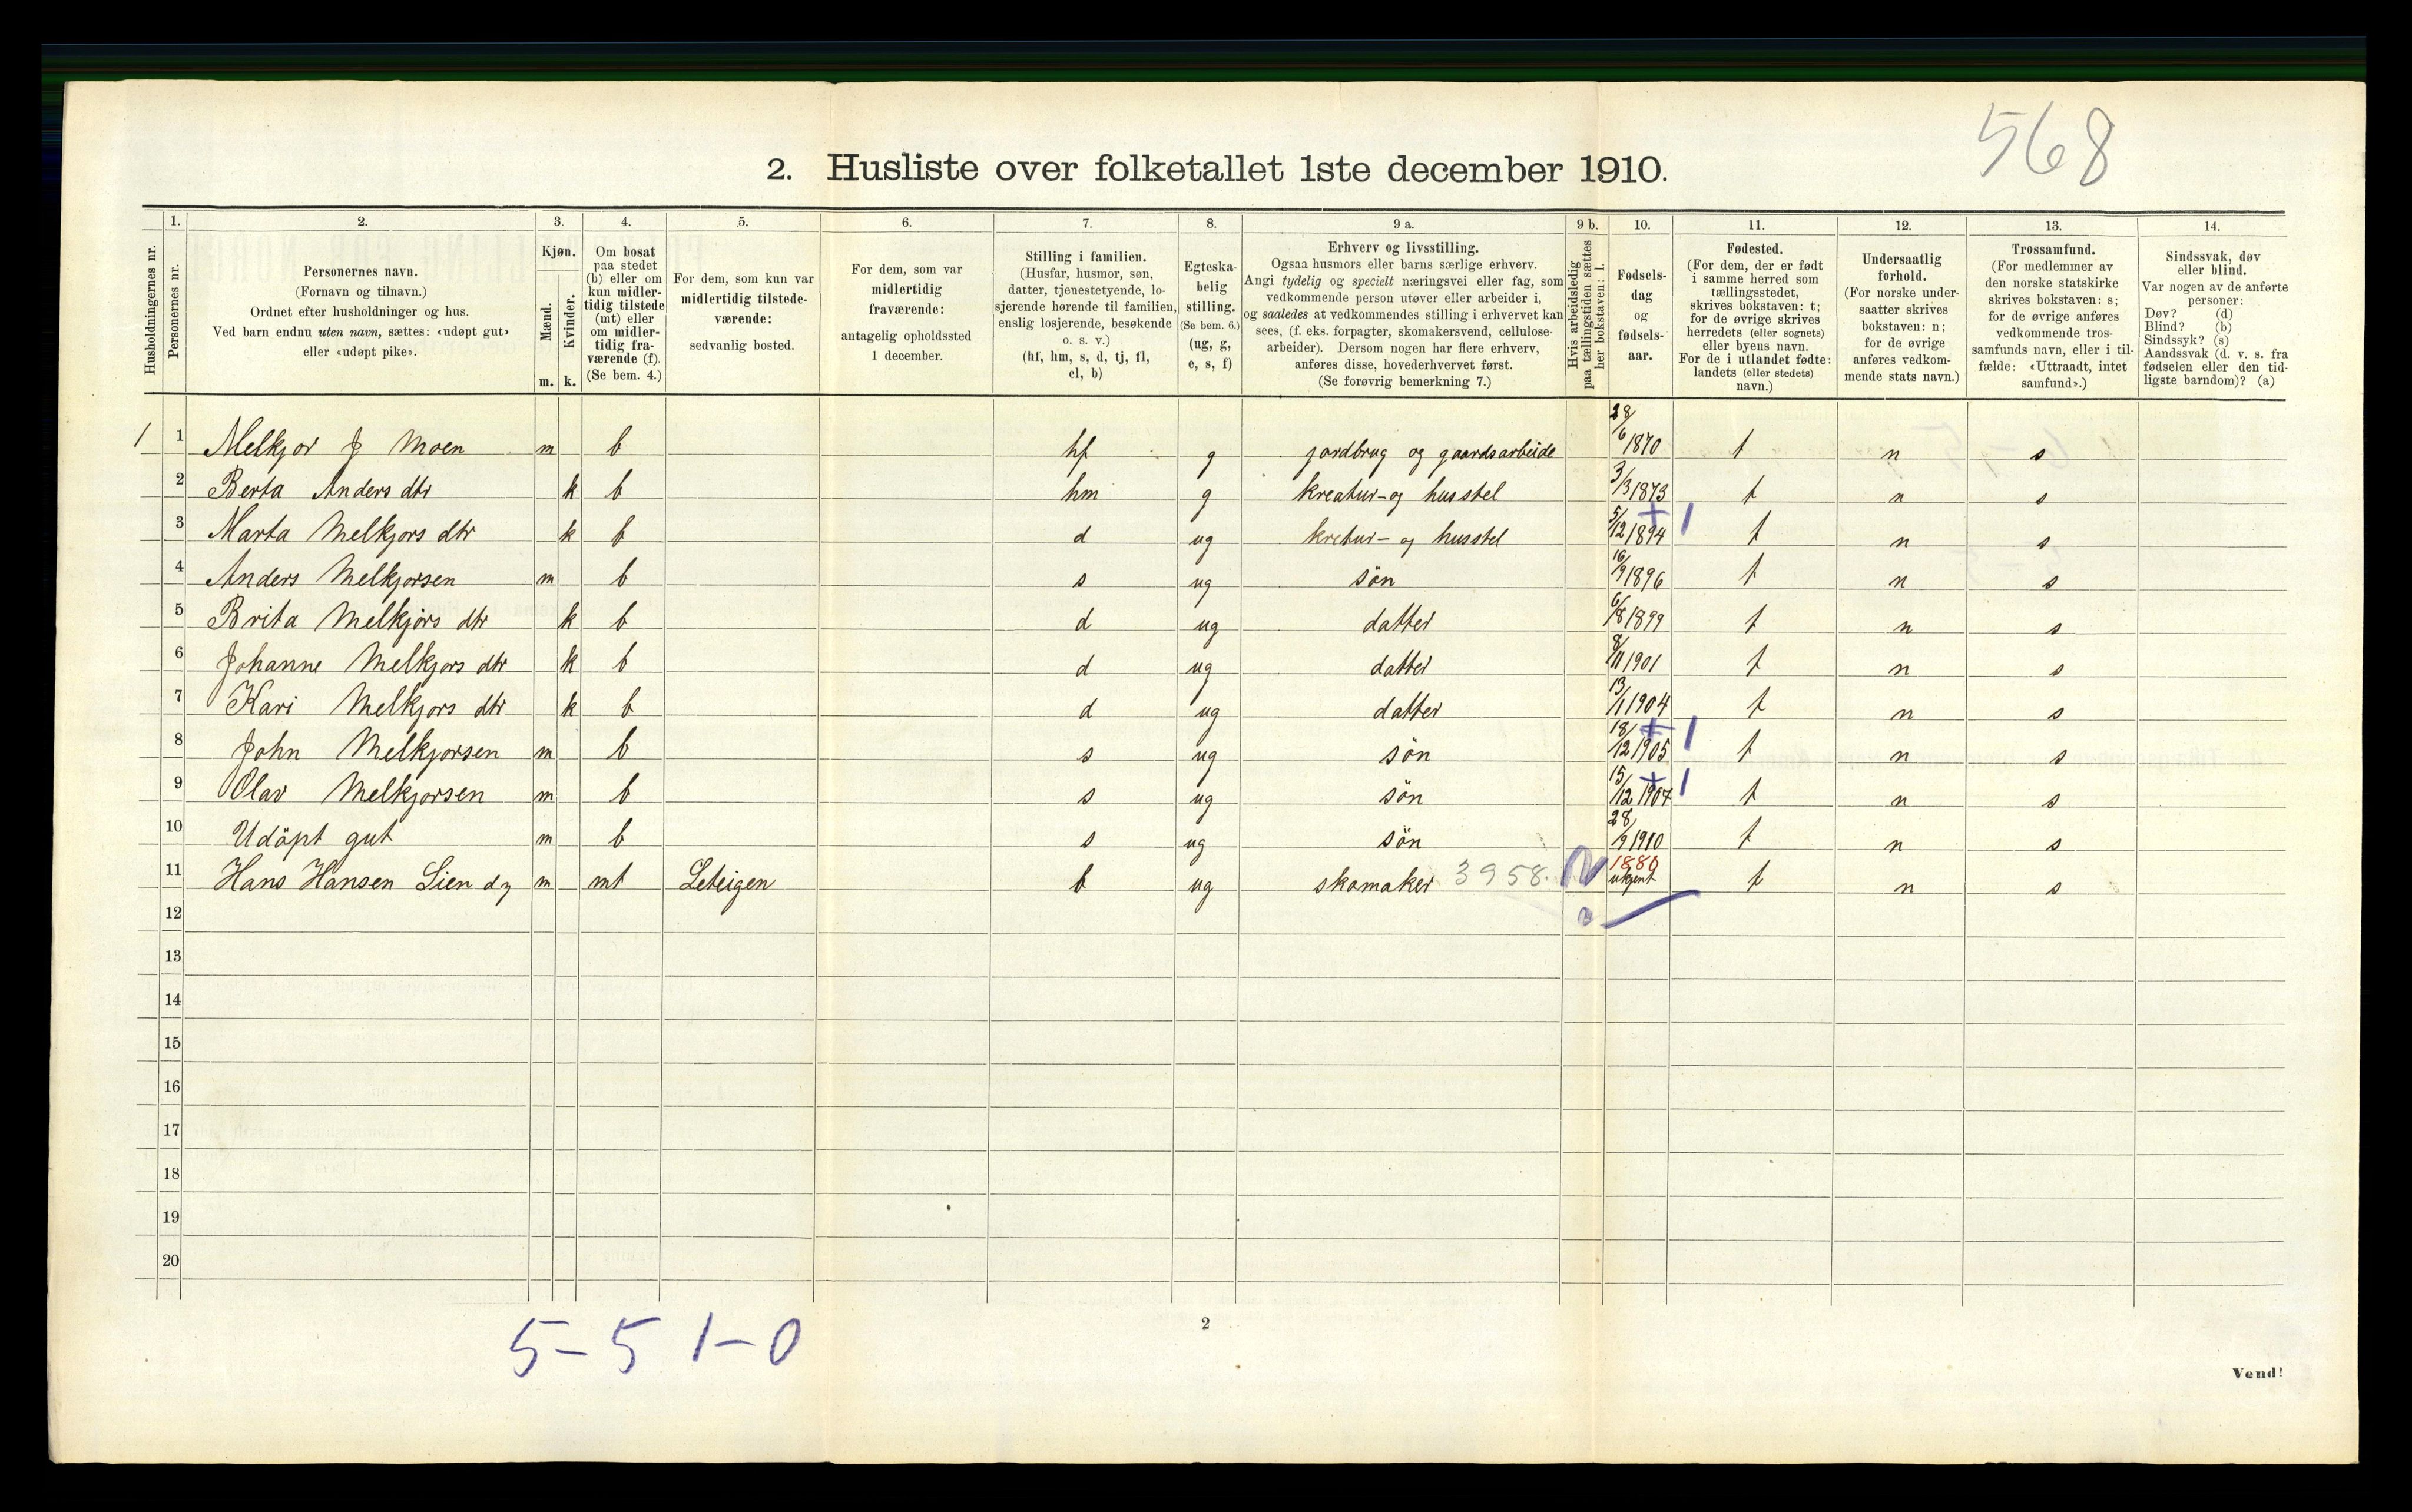 568
2. Husliste over folketallet 1ste december 1910.
1. 2. 3. 4. 5. 6. 7. 8. 9 a. 9 b. 10. 11. 12. 13. 14.
Husholdningernes nr.
Personernes nr.
Personernes navn.
(Fornavn og tilnavn.)
Ordnet efter husholdninger og hus.
Ved barn endnu uten navn, sættes: «udøpt gut»
eller «udøpt pike».
Kjøn.
Mænd.
Kvinder.
m. k.
Om bosat
paa stedet
(b) eller om
kun midler-
tidig tilstede
(mt) eller
om midler-
tidig fra-
værende (f).
(Se bem. 4.)
For dem, som kun var
midlertidig tilstede-
værende:
sedvanlig bosted.
For dem, som var
midlertidig
fraværende:
antagelig opholdssted
1 december.
Stilling i familien.
(Husfar, husmor, søn,
datter, tjenestetyende, lo-
sjerende hørende til familien,
enslig losjerende, besøkende
o. s. v.)
(hf, hm, s, d, tj, fl,
el, b)
Egteska-
belig
stilling.
(Se bem. 6.)
(ug, g,
e, s, f)
Erhverv og livsstilling.
Ogsaa husmors eller barns særlige erhverv.
Angi tydelig og specielt næringsvei eller fag, som
vedkommende person utøver eller arbeider i,
og saaledes at vedkommendes stilling i erhvervet kan
sees, (f. eks. forpagter, skomakersvend, cellulose-
arbeider). Dersom nogen har flere erhverv,
anføres disse, hovederhvervet først.
(Se forøvrig bemerkning 7.)
Hvis arbeidsledig
paa tællingstiden sættes
her bokstaven: l.
Fødsels-
dag
og
fødsels-
aar.
Fødested.
(For dem, der er født
i samme herred som
tællingsstedet,
skrives bokstaven: t;
for de øvrige skrives
herredets (eller sognets)
eller byens navn.
For de i utlandet fødte:
landets (eller stedets)
navn.)
Undersaatlig
forhold.
(For norske under-
saatter skrives
bokstaven: n;
for de øvrige
anføres vedkom-
mende stats navn.)
Trossamfund.
(For medlemmer av
den norske statskirke
skrives bokstaven: s;
for de øvrige anføres
vedkommende tros-
samfunds navn, eller i til-
fælde: «Uttraadt, intet
samfund».)
Sindssvak, døv
eller blind.
Var nogen av de anførte
personer:
Døv? (d)
Blind? (b)
Sindssyk? (s)
Aandssvak (d. v. s. fra
fødselen eller den tid-
ligste barndom)? (a)
1 1 Melkjor J Moen m b hf g jordbrug og gaardsarbeide 28/6 1870 t n s
2 Berta Anders dtr k b hm g kreatur- og husstel 3/3 1873 t n s
3 Marta Melkjors dtr k b d ug kretur- og husstel 5/12 1894 + 1 t n s
4 Anders Melkjorsen m b s ug søn 16/9 1896 t n s
5 Brita Melkjors dtr k b d ug datter 6/8 1899 t n s
6 Johanne Melkjors dtr k b d ug datter 8/11 1901 t n s
7 Kari Melkjors dtr k b d ug datter 13/1 1904 t n s
8 John Melkjorsen m b s ug søn 18/12 1905 + 1 t n s
9 Olav Melkjorsen m b s ug søn 15/12 1907 + 1 t n s
10 Udöpt gut m b s ug søn 28/9 1910 t n s
11 Hans Hansen Lien m mt Leteigen b ug skomaker 3958. 1880 ukjent t n s
12
13
14
15
16
17
18
19
20
5-5 1-0
2
Vend!